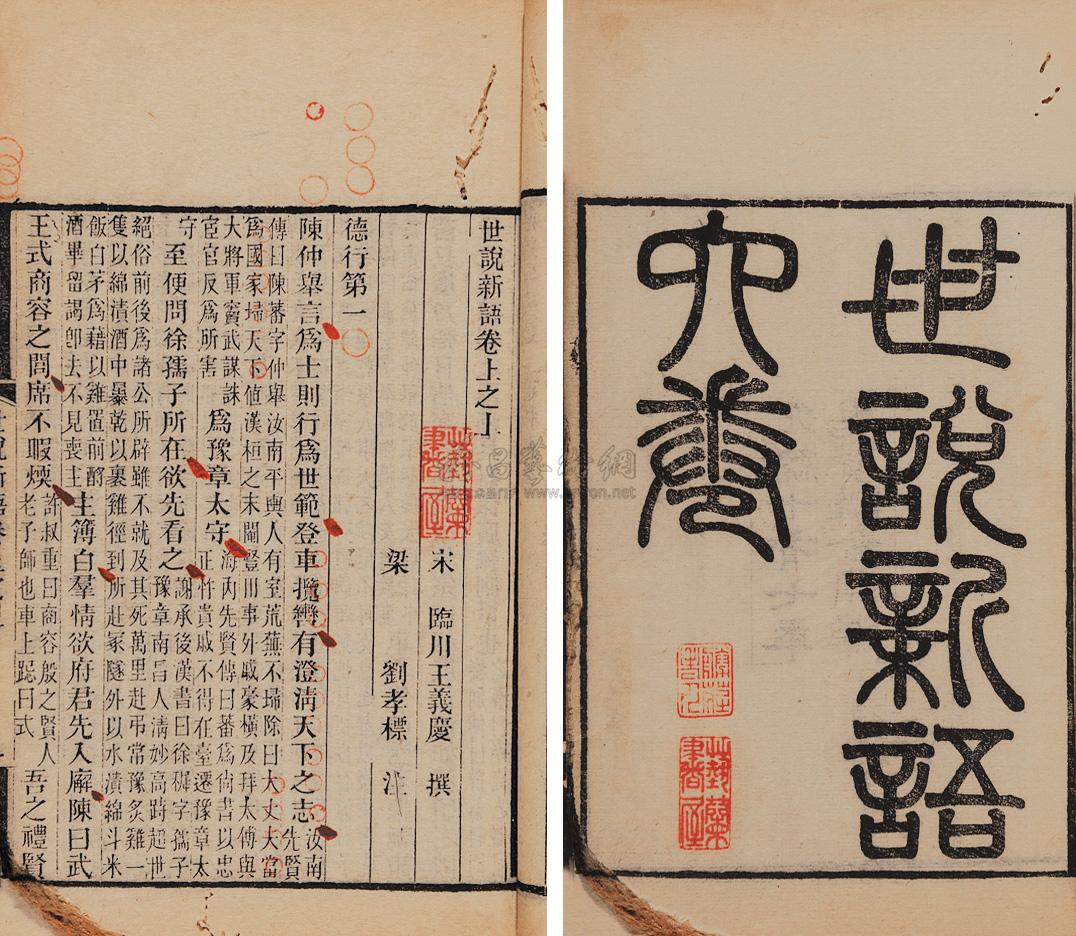 世說新語
六卷
世說新語卷上之上
宋 臨川王義慶 撰
梁 劉孝標 注
德行第一
陳仲舉言爲士則行爲世範登車攬轡有澄清天下之志汝南先賢
傳曰陳蕃字仲舉汝南平輿人有室荒蕪不埽除曰大丈夫當
爲國家埽天下値漢桓之末閹豎用事外戚豪橫及拜太傅與
大將軍竇武謀誅宦官反爲所害 爲豫章太守 海內先賢傳曰蕃爲尙書以忠正忤貴戚不得在臺遷豫章太
守 至便問徐孺子所在欲先看之 謝承後漢書曰徐穉字孺子豫章南昌人淸妙高跱超世
絕俗前後爲諸公所辟雖不就及其死萬里赴弔常豫炙雞一
隻以綿漬酒中暴乾以裹雞徑到所赴冢隧外以水漬綿斗米
飯白茅爲藉以雞置前酹酒畢留謁卽去不見喪主 主簿白羣情欲府君先入廨陳曰武
王式商容之閭席不暇煖 許叔重曰商容殷之賢人老子師也車上跽曰式 吾之禮賢